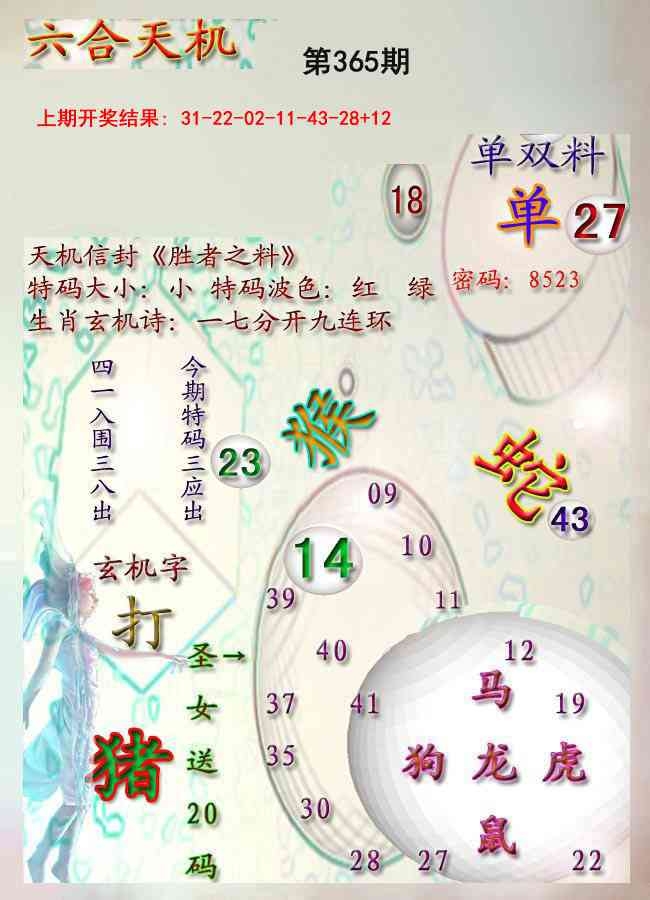 六合天机
第365期
上期开奖结果: 31-22-02-11-43-28+12
单双料
18
单 27
天机信封《胜者之料》
特码大小: 小 特码波色: 红 绿
密码: 8523
生肖玄机诗: 一七分开九连环
今期特码三应出
四一入围三八出
23
猴
蛇
43
09
14
10
玄机字
打
39
11
圣女送20码
→
40
12
马
37
41
19
猪
35
狗 龙 虎
30
鼠
28
27
22